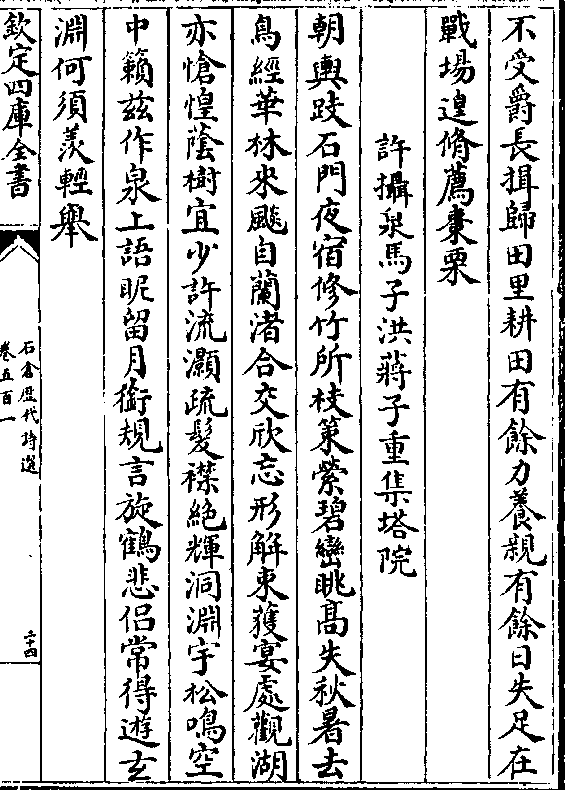 不受爵長揖歸田里耕田有餘力養親有餘日失足在
戰場遑脩薦棗栗
許攝泉馬子洪蔣子重集塔院
朝輿跂石門夜宿修竹所枝策縈碧巒眺髙失秋暑去
鳥經華林來颷自蘭渚合交欣忘形解束獲宴處觀湖
亦愴惶蔭樹宜少許流灝疏髮襟絶輝洞淵宇松鳴空
中籟兹作泉上語昵留月銜規言旋鶴悲侣常得遊玄
淵何須羨輕舉
欽定四庫全書
石倉歷代詩選
卷五百一
二十四